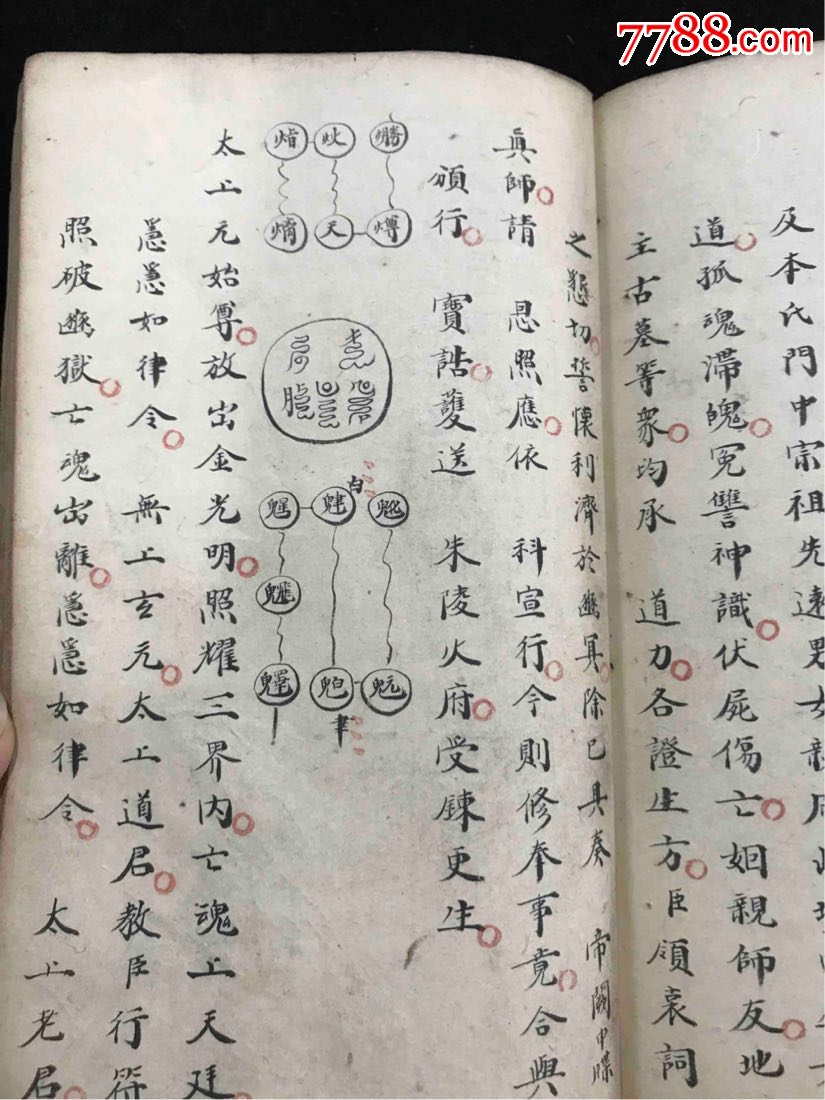 7788.com
及本氏門中宗祖先遠男女親
道孤魂滯魄冤讐神識伏屍傷亡姻親師友地
主古墓等衆均承 道力各證生方臣領哀詞
之懇切誓懷利濟於幽冥除已具奏 帝闕申牒
真師請 恩照應依 科宣行今則修奉事竟合與
頒行 寶誥䕶送 朱陵火府受鍊更生
太上元始尊放出金光明照耀三界内亡魂上天廷
急急如律令 無上玄元太上道君教臣行符
照破幽獄亡魂出離急急如律令 太上老君
天
白